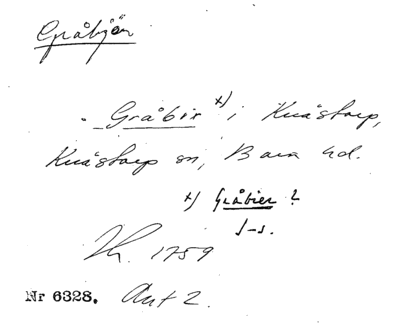 Gråbjär
. Gråbir x) i Knästorp,
Knästorp sn, Bara hd.
x) Gråbier ?
J-s.
Kr. 1759
Nr 6328. Ant 2.